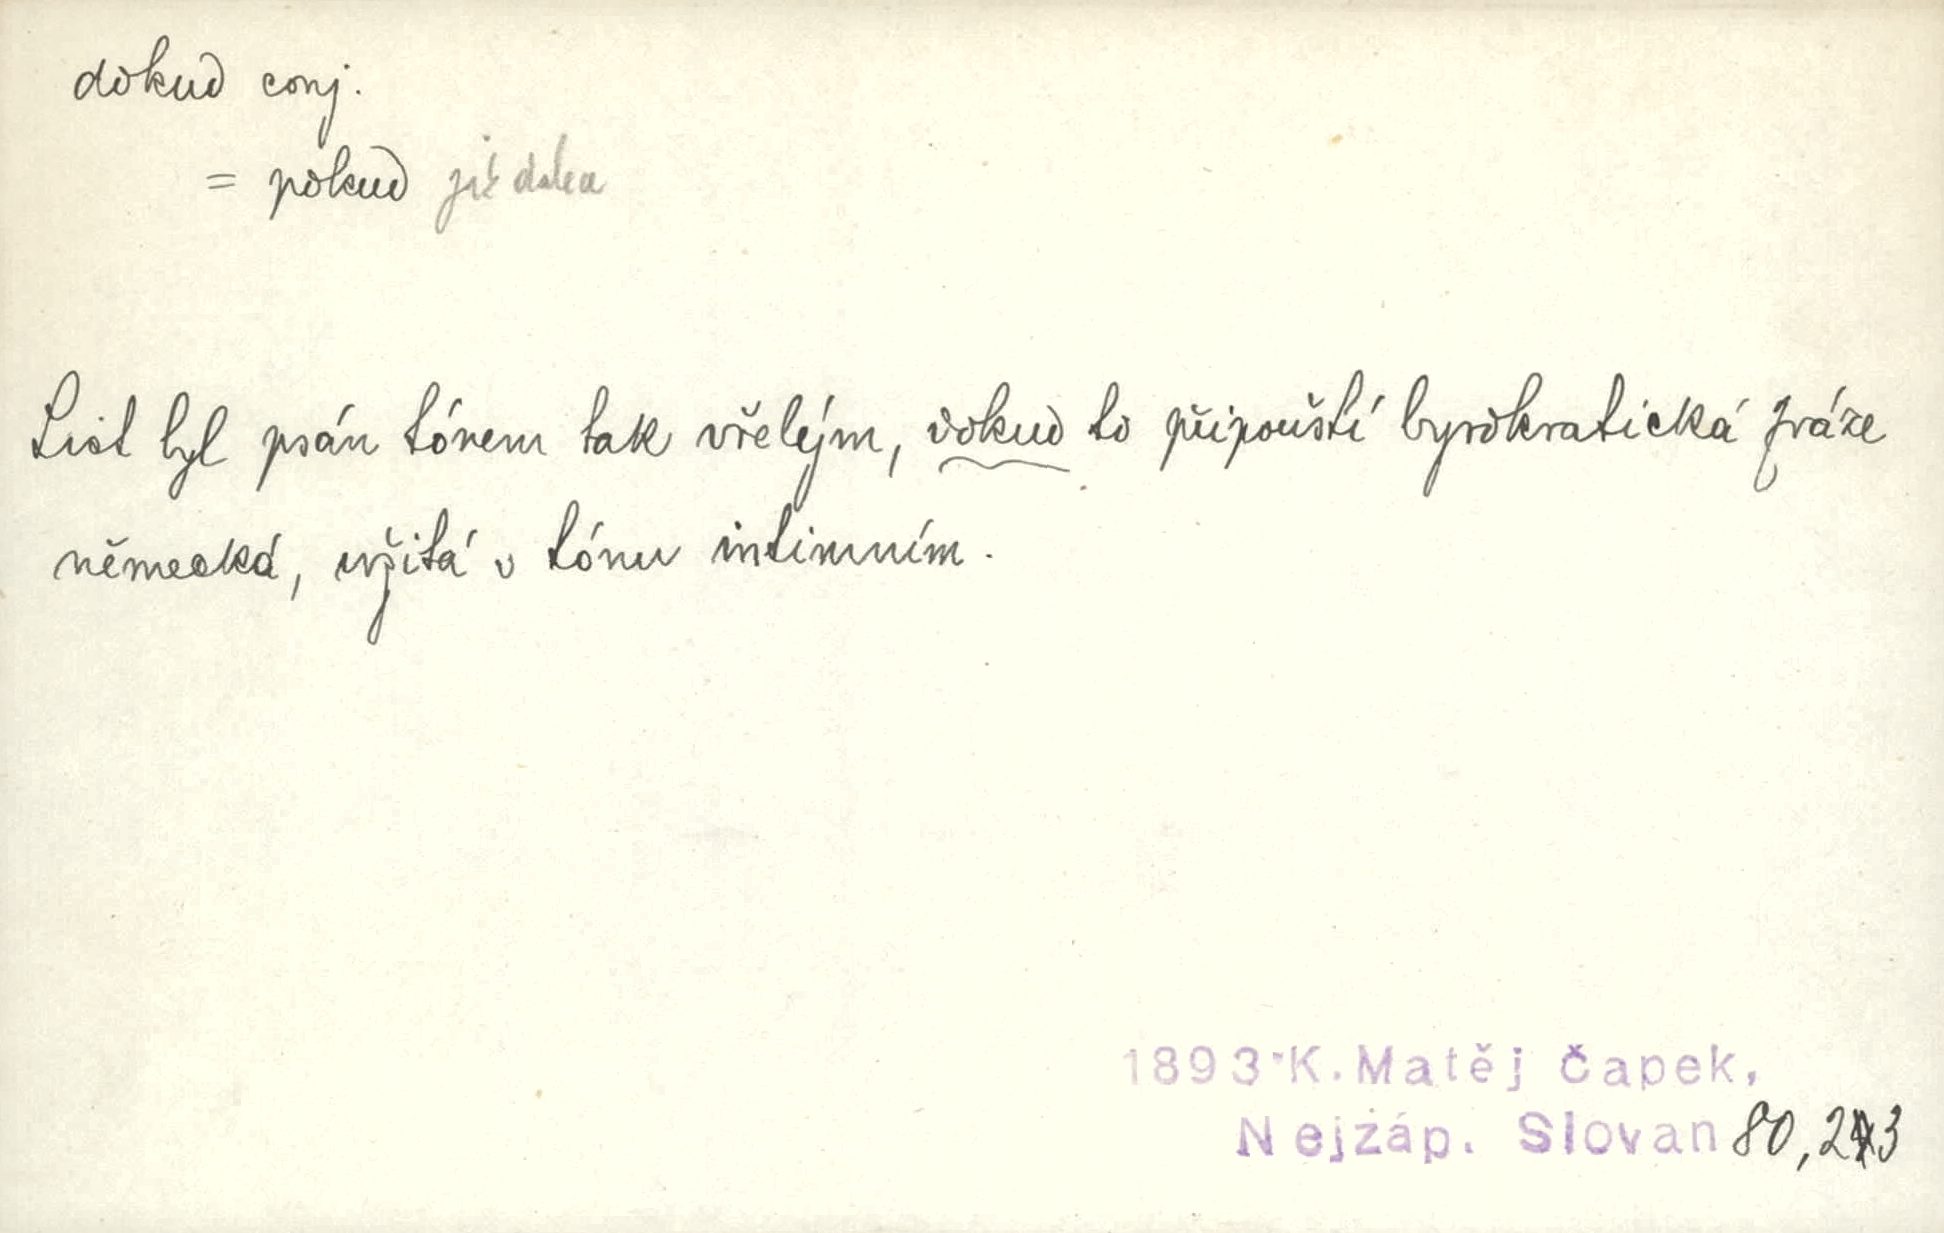 dokud conj.
= pokud již
List byl psán tónem tak vřelým, dokud to připouští byrokratická fráze
německá, užitá v tónu intimním.
1893 K. Matěj Čapek,
Nejzáp. Slovan 80,